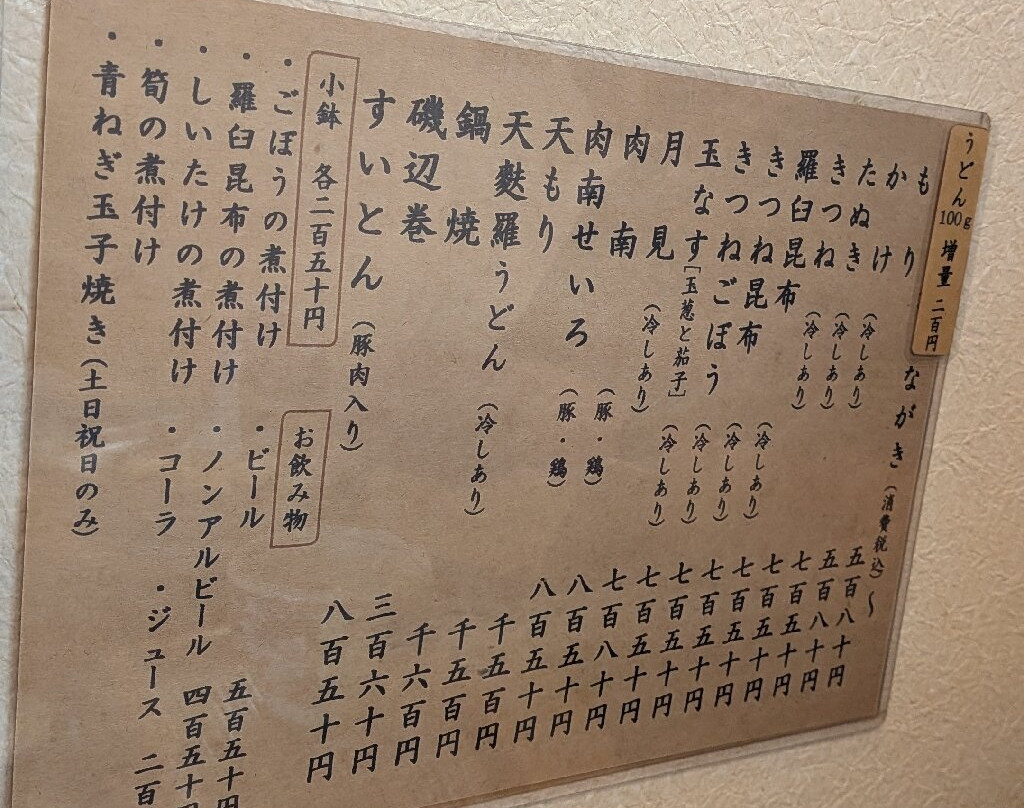 うどん100g増量 二百円
ながき(消費税込)～
もり 五百八十円
かけ(冷しあり) 五百八十円
たぬき(冷しあり) 七百五十円
きつね(冷しあり) 七百五十円
羅臼昆布(冷しあり) 七百五十円
きつね昆布(冷しあり) 七百五十円
きつねごぼう(冷しあり) 七百五十円
玉なす[玉葱と茄子](冷しあり) 七百五十円
月見(冷しあり) 七百八十円
肉南(豚・鶏) 八百五十円
肉南せいろ(豚・鶏) 八百五十円
天もり 千五百円
天麩羅うどん(冷しあり) 千五百円
鍋焼 千六百円
磯辺巻 三百六十円
すいとん(豚肉入り) 八百五十円
小鉢 各二百五十円
・ごぼうの煮付け
・羅臼昆布の煮付け
・しいたけの煮付け
・筍の煮付け
・青ねぎ玉子焼き(土日祝日のみ)
お飲み物
・ビール 五百五十円
・ノンアルビール 四百五十円
・コーラ ・ジュース 二百